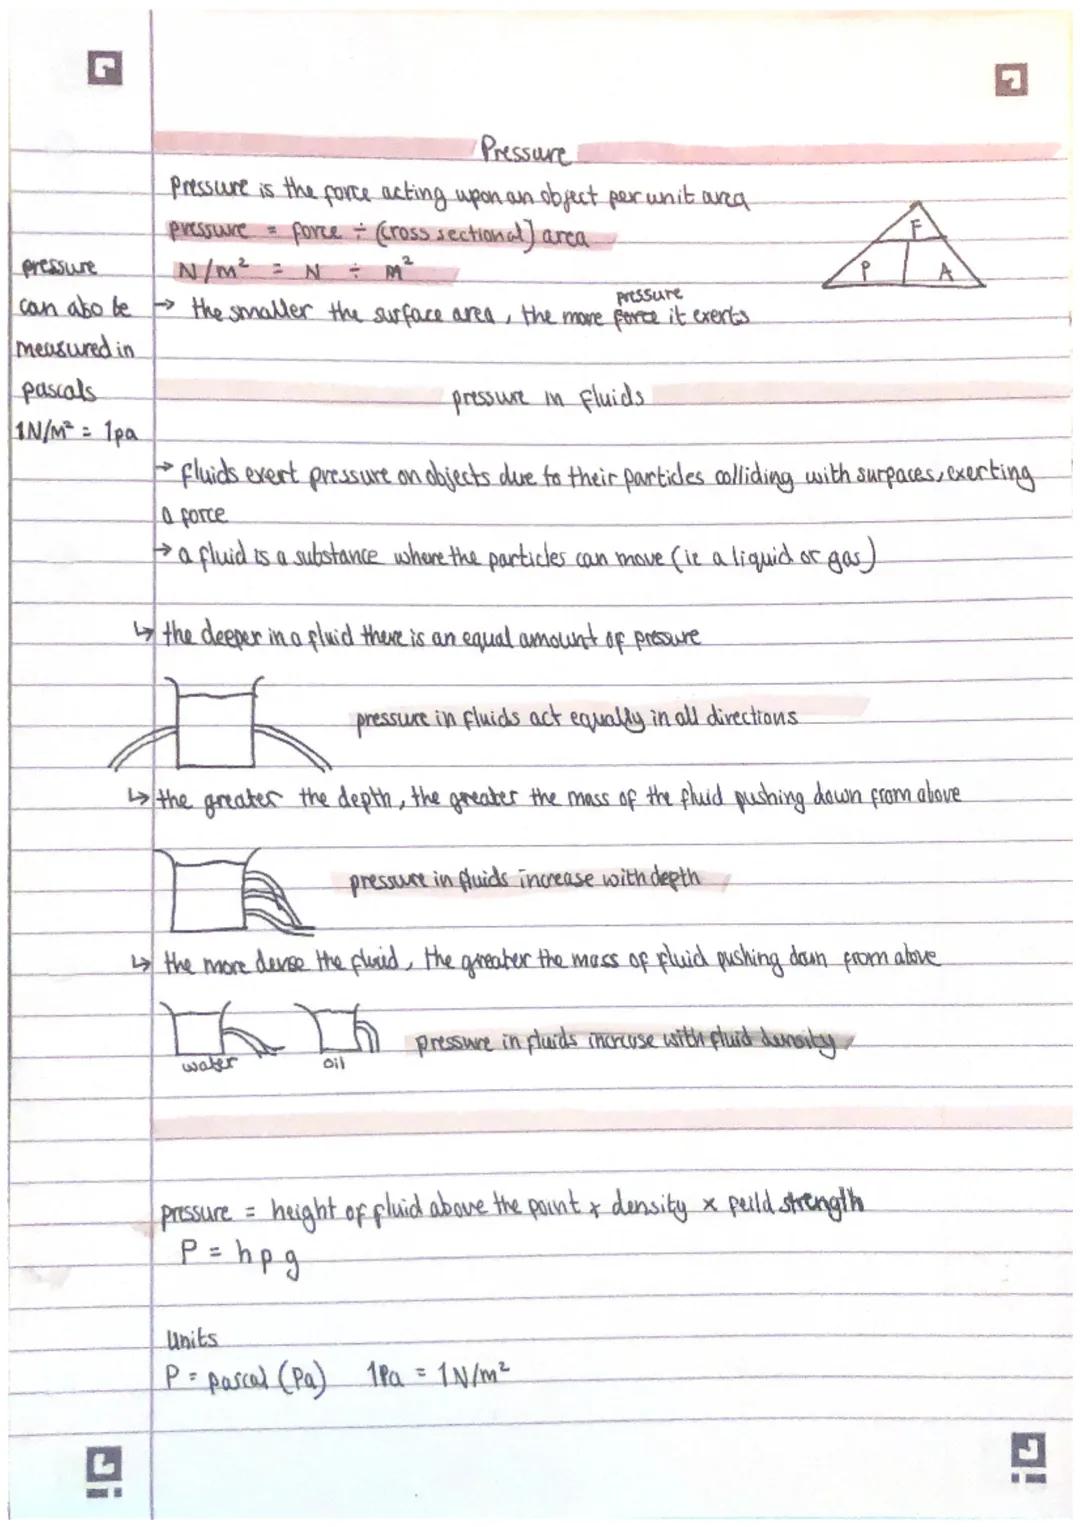 Pressure
Pressure is the force acting upon an object per unit area
pressure = force ÷ (cross sectional) area
N/m² = N ÷ m²
F
P A
pressure
can also be
measured in
pascals
1N/m² = 1pa
→ the smaller the surface area, the more force it exerts
pressure
pressure in fluids
→ fluids exert pressure on objects due to their particles colliding with surfaces, exerting
a force
→ a fluid is a substance where the particles can move (ie a liquid or gas)
↳ the deeper in a fluid there is an equal amount of pressure
pressure in fluids act equally in all directions
↳ the greater the depth, the greater the mass of the fluid pushing down from above
pressure in fluids increase with depth
↳ the more dense the fluid, the greater the mass of fluid pushing down from above
water
oil
pressure in fluids increase with fluid density
pressure = height of fluid above the point x density x feild strength
P = hρg
Units
P = pascal (Pa) 1Pa = 1N/m²